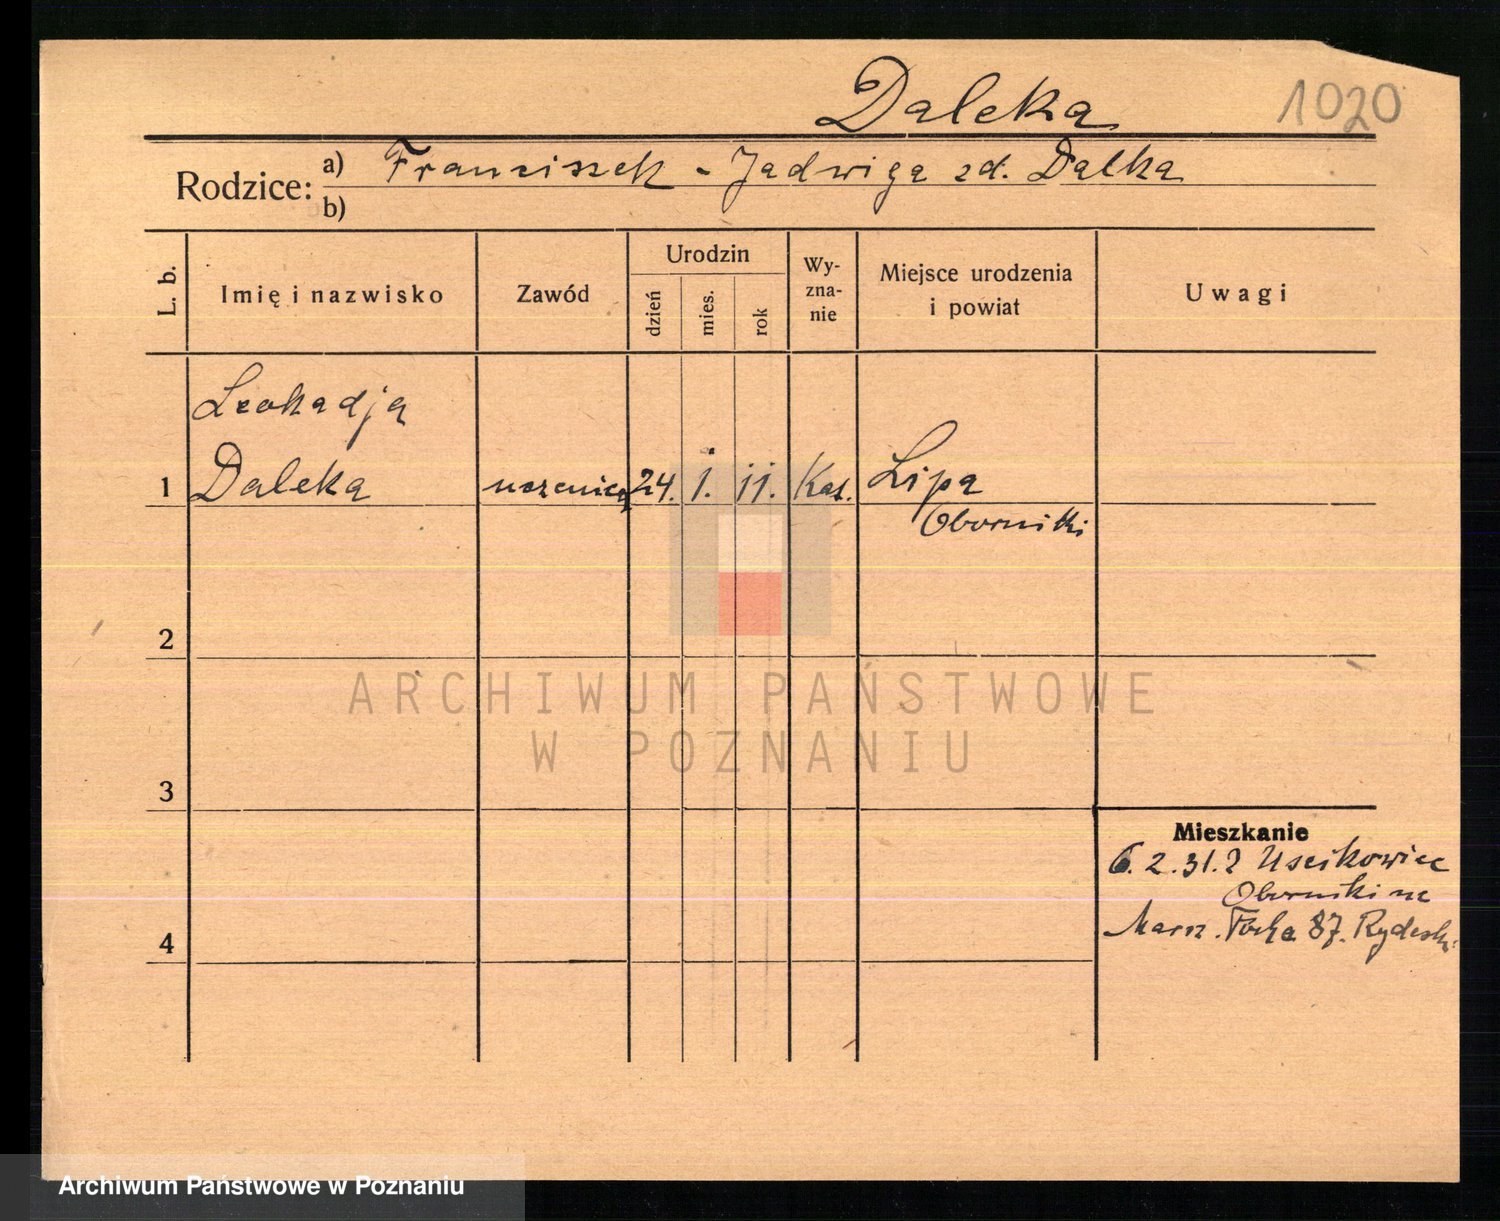 Daleka
1020
Rodzice:
a) Franciszek - Jadwiga zd. Dalka
b)
L. b.
Imię i nazwisko
Zawód
Urodzin
dzień
mies.
rok
Wy-
zna-
nie
Miejsce urodzenia
i powiat
Uwagi
Leokadja
1 Daleka uczenica 24. 1. 11. Kat. Lipa
Oborniki
2
ARCHIWUM PAŃSTWOWE
W POZNANIU
3
Mieszkanie
6. 2. 31. z Uscikowiec
Oborniki
Marsz. Focha 87.
4
Archiwum Państwowe w Poznaniu